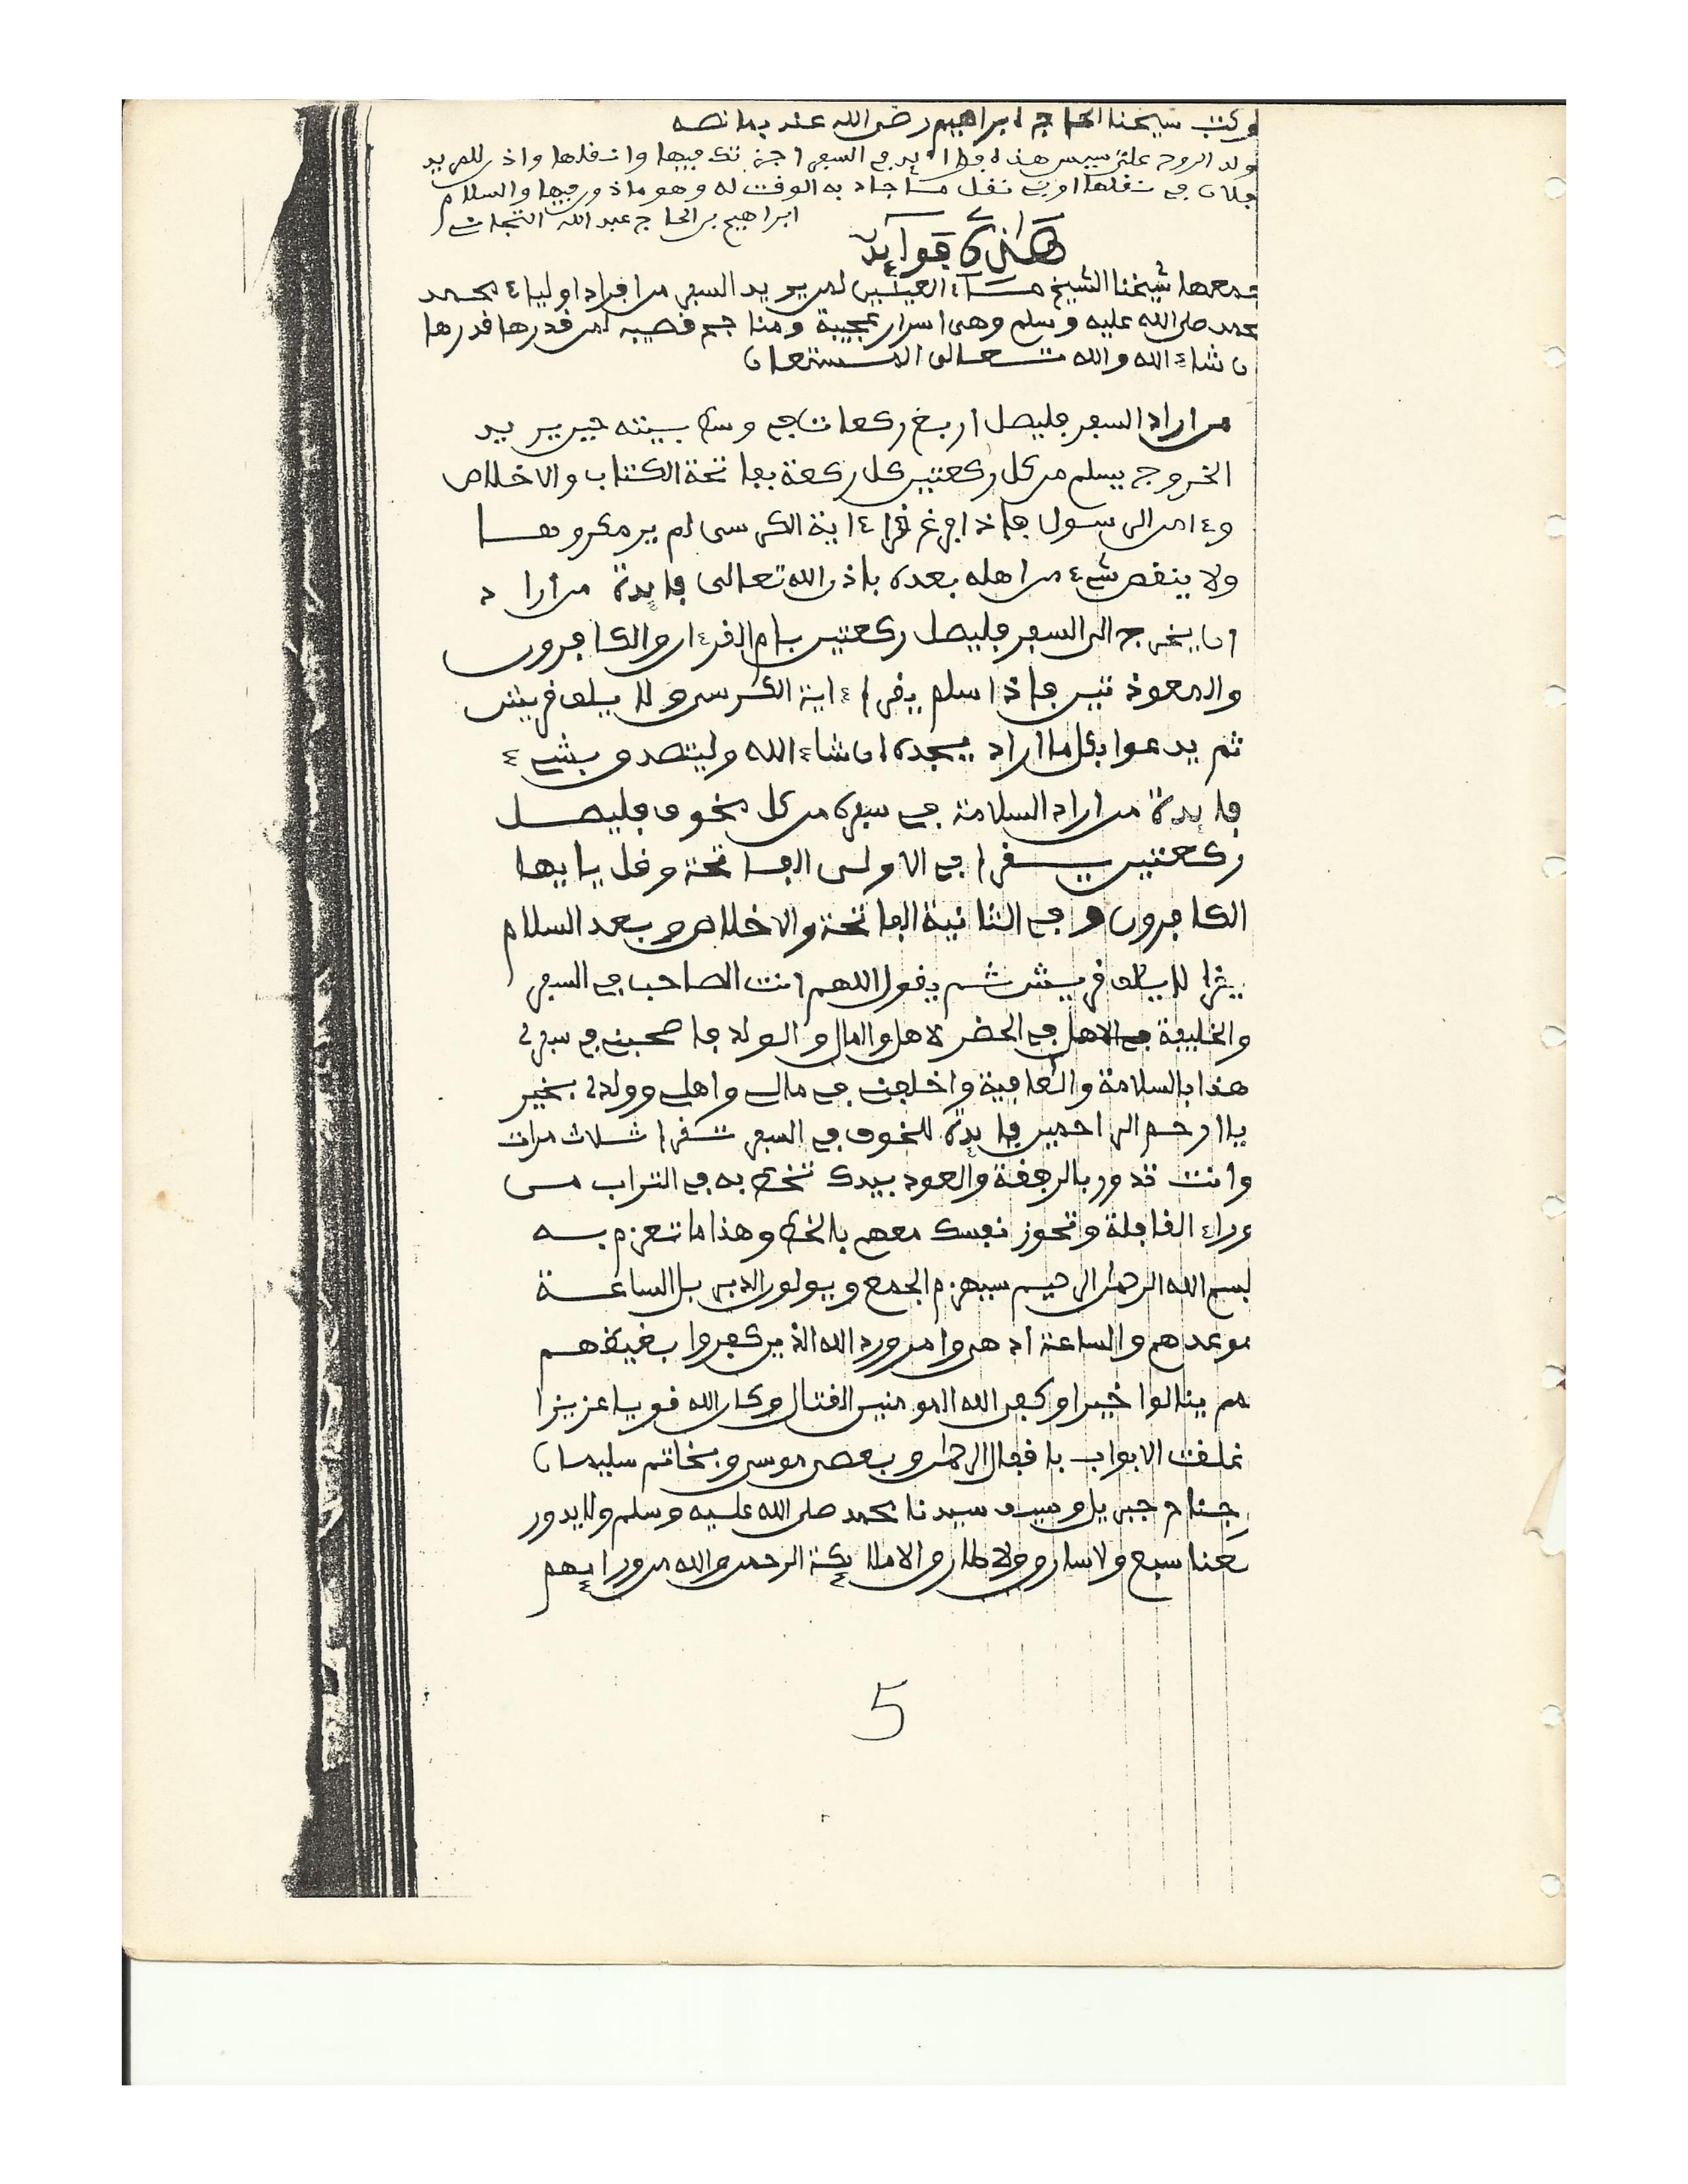 وكتب شيخنا الحاج ابراهيم رضى الله عنه بما نصه
ولد الروح علي سيس هذه فوائد في السفر اجزتك فيها وانقلها واذن للمريد
فلان في نقلها او في نقل ما جاد به الوقت له وهو ماذون فيها والسلام
ابراهيم بن الحاج عبد الله التجاني
هذه فوائد
جمعها شيخنا الشيخ ماء العينين لمن يريد السفر من افراد اولياء محمد
محمد صلى الله عليه وسلم وهي اسرار عجيبة ومنا جم قصيبه لمن قدرها قدرها
ان شاء الله والله تعالى المستعان
من اراد السفر فليصل اربع ركعات في وسط بيته حين يريد
الخروج يسلم من كل ركعتين كل ركعة بفاتحة الكتاب والاخلاص
وءامن الرسول فاذا فرغ قرا ءاية الكرسى لم ير مكروها
ولا ينقص شيء من اهله بعده باذن الله تعالى فايدة من اراد
ان يخرج الى السفر فليصل ركعتين بام القرءان والكافرون
والمعوذتين فاذا سلم يقرا ءاية الكرسى ولايلف قريش
ثم يدعوا بكل ما اراد يجده ان شاء الله وليتصدق بشيء
فايدة من اراد السلامة في سفره من كل مخوف فليصل
ركعتين يقرا في الاولى الفاتحة وقل يايها
الكافرون وفي الثانية الفاتحة والاخلاص وبعد السلام
يقرا لايلف قريش ثم يقول اللهم انت الصاحب في السفر
والخليفة في الاهل في الحضر لاهل والمال والولد فاصحبني في سفري
هذا بالسلامة والعافية واخلفني في مالي واهلي وولدي بخير
ياارحم الراحمين فايدة للخوف في السفر تقرا ثلاث مرات
وانت تدور بالرفقة والعود بيدك تخط به في التراب من
وراء القافلة وتحوز نفسك معهم بالخط وهذا ما تعزم به
بسم الله الرحمن الرحيم سيهزم الجمع ويولون الدبر بل الساعة
موعدهم والساعة ادهى وامر ورد الله الذين كفروا بغيظهم
لم ينالوا خيرا وكفى الله المومنين القتال وكان الله قويا عزيزا
غلقت الابواب باقفال الرحمن وبعصى موسى وبخاتم سليمان
جناح جبريل وسيف سيدنا محمد صلى الله عليه وسلم ولا يدور
بعنا سبع ولا سارق ولا طارق الا ملائكة الرحمن والله من ورائهم
5